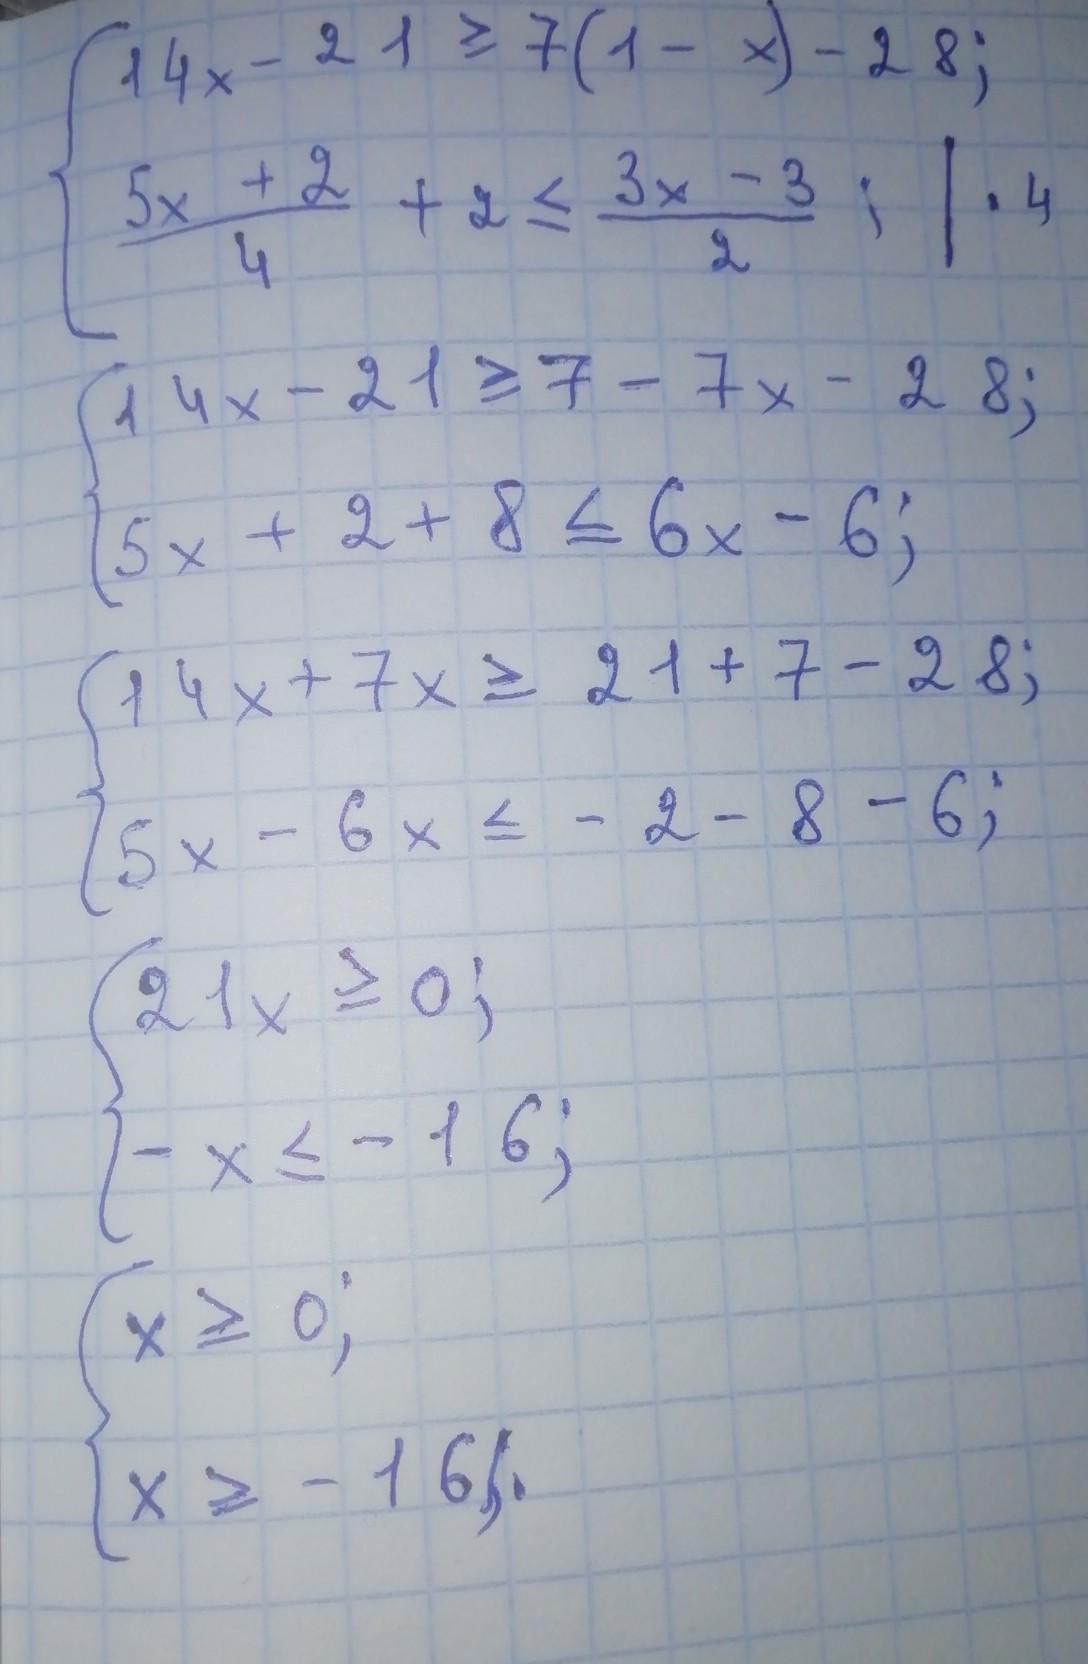 14x - 21 ≥ 7(1 - x) - 28;
(5x + 2)/4 + 2 ≤ (3x - 3)/2 ; | · 4
14x - 21 ≥ 7 - 7x - 28;
5x + 2 + 8 ≤ 6x - 6;
14x + 7x ≥ 21 + 7 - 28;
5x - 6x ≤ - 2 - 8 - 6;
21x ≥ 0;
- x ≤ - 16;
x ≥ 0;
x ≥ - 16.